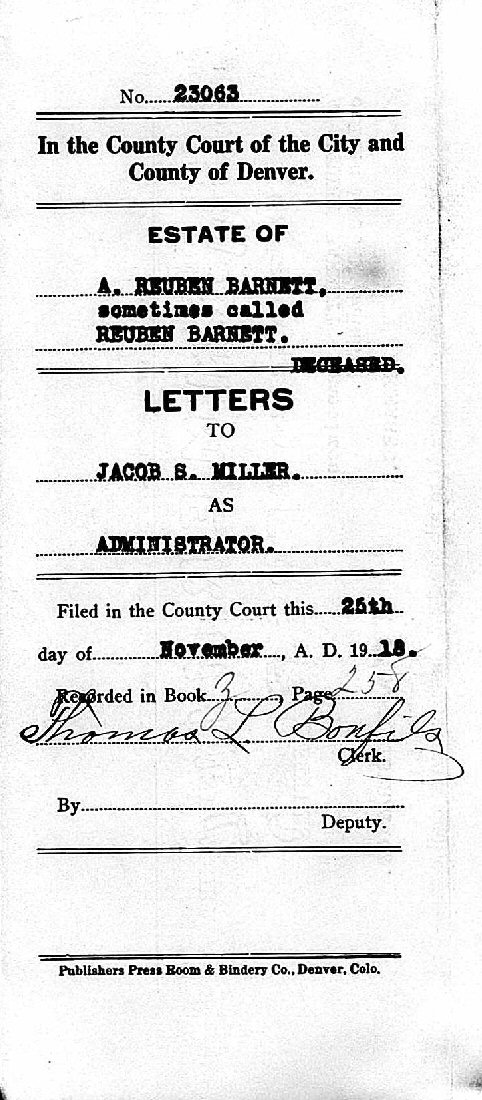 No. 23063
In the County Court of the City and
County of Denver.
ESTATE OF
A. REUBEN BARNETT,
sometimes called
REUBEN BARNETT.
DECEASED.
LETTERS
TO
JACOB S. MILLER.
AS
ADMINISTRATOR.
Filed in the County Court this 25th
day of November, A. D. 19 18.
Recorded in Book 3 Page 258
Thomas L Bonfils
Clerk.
By
Deputy.
Publishers Press Room & Bindery Co., Denver, Colo.